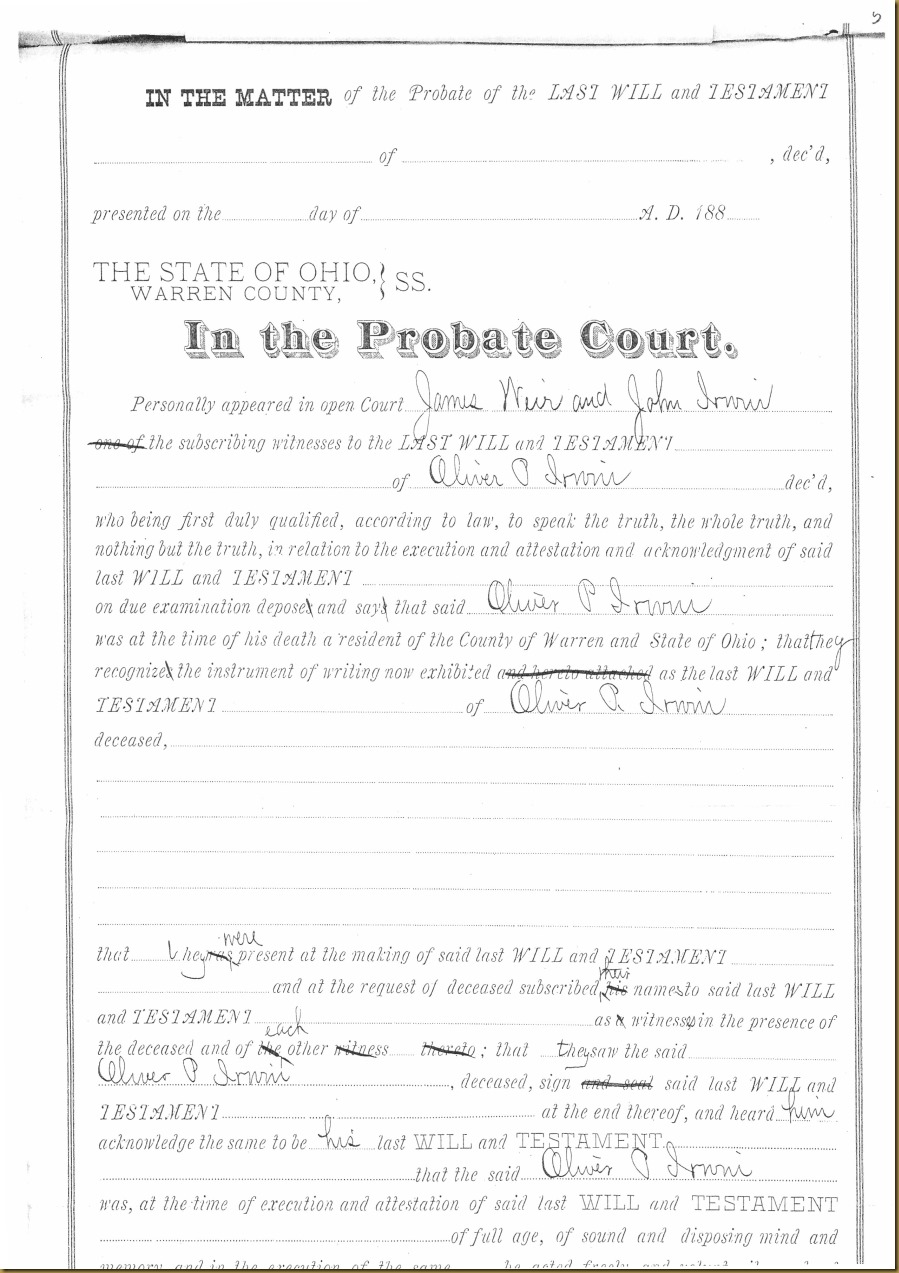 5
IN THE MATTER of the Probate of the LAST WILL and TESTAMENT
of , dec'd,
presented on the day of A. D. 188
THE STATE OF OHIO,
WARREN COUNTY, } SS.
In the Probate Court.
Personally appeared in open Court James Weir and John Irwin
one of the subscribing witnesses to the LAST WILL and TESTAMENT
of Oliver P Irwin dec'd,
who being first duly qualified, according to law, to speak the truth, the whole truth, and
nothing but the truth, in relation to the execution and attestation and acknowledgment of said
last WILL and TESTAMENT
on due examination depose and say that said Oliver P Irwin
was at the time of his death a resident of the County of Warren and State of Ohio; that they
recognize the instrument of writing now exhibited and hereto attached as the last WILL and
TESTAMENT of Oliver P. Irwin
deceased,
were
that they was present at the making of said last WILL and TESTAMENT
their
and at the request of deceased subscribed his names to said last WILL
and TESTAMENT as a witness in the presence of
each
the deceased and of the other witness thereto; that they saw the said
Oliver P Irwin , deceased, sign and seal said last WILL and
TESTAMENT at the end thereof, and heard him
acknowledge the same to be his last WILL and TESTAMENT
that the said Oliver P Irwin
was, at the time of execution and attestation of said last WILL and TESTAMENT
of full age, of sound and disposing mind and